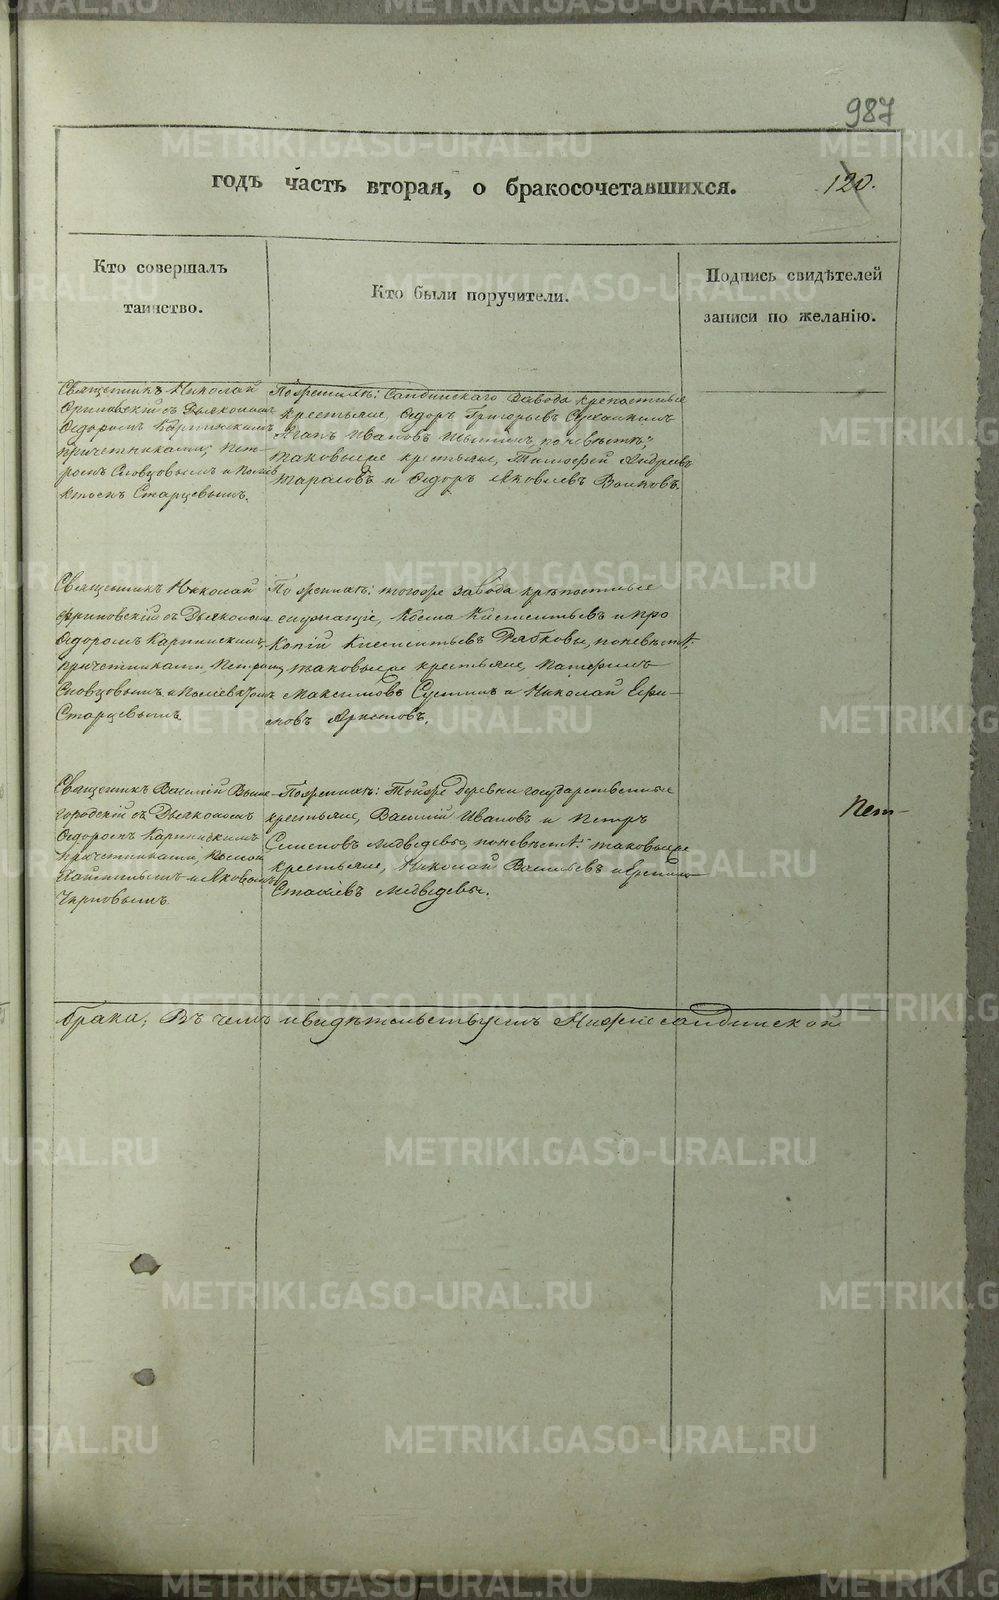 987
годъ часть вторая, о бракосочетавшихся. 120.
Кто совершалъ
таинство.
Кто были поручители.
Подпись свидѣтелей
записи по желанію.
Священникъ Николай
съ Дьякономъ
Федоромъ Карпинскимъ
причетниками, Пет-
ромъ Словцовымъ и Полiев
ктомъ Старцевымъ.
По женихѣ: Салдинскаго Завода крепостные
крестьяне, Федоръ Григорьевъ
Иванов
таковыеже крестьяне, Тимофей Андреевъ
Тарасовъ и Федоръ Яковлевъ Волковъ.
Священникъ Николай
съ Дьякономъ
Федоромъ Карпинскимъ,
причетниками, Петромъ
Словцовымъ и Полiевктомъ
Старцевымъ.
По женихѣ: тогоже завода крѣпостные
служащіе, Косма Климентьевъ и Про
копій Климентьевъ Рябковы, по невѣстѣ:
таковыеже крестьяне,
Максимовъ и Николай Ефи-
мовъ Аристовъ.
Священникъ Василій Выше-
городскій съ Дьякономъ
Федоромъ Карпинскимъ
причетниками, Космою
и Яковомъ
Черновымъ.
По женихѣ: Тойже Деревни государственные
крестьяне, Василій Ивановъ и Петръ
Семеновъ Медведевы, по невѣстѣ: таковыеже
крестьяне, Николай Васильевъ
Медведевы.
брака; Въ чемъ и свидѣтельствуемъ Нижнесалдинской
METRIKI.GASO-URAL.RU